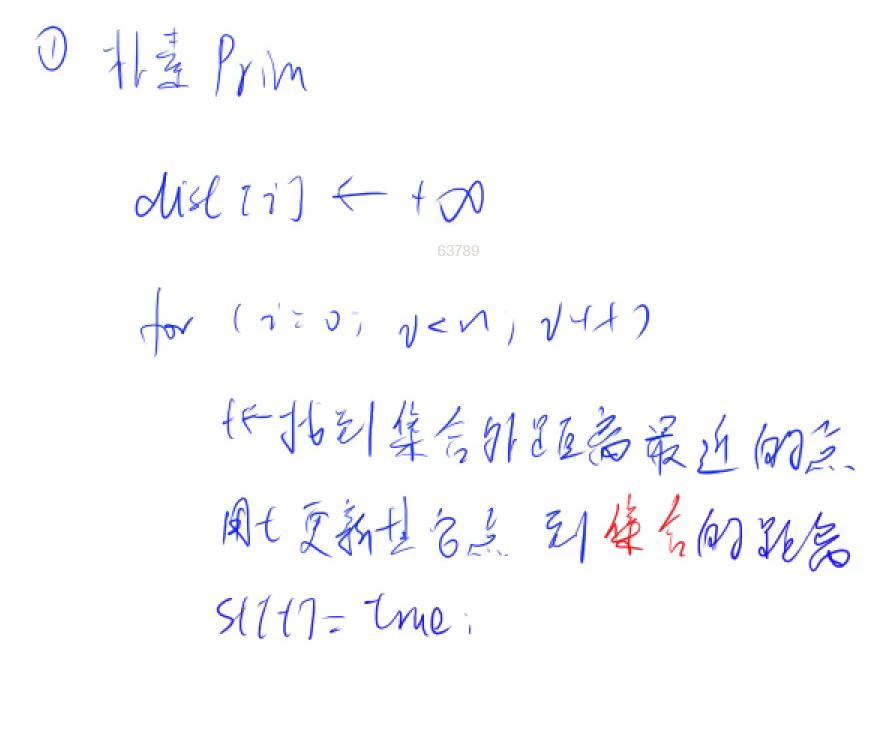 ① 朴素Prim
dist[i] ← +∞
63789
for (i=0; i<n; i++)
t← 找到集合外距离最近的点
用t更新其它点 到集合的距离
st[t]=true;